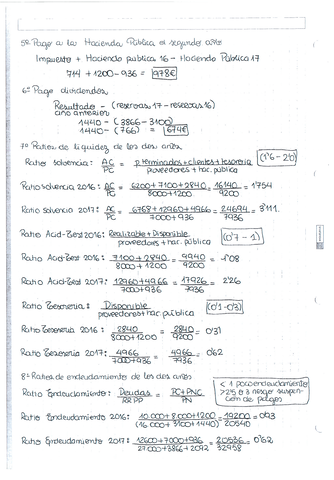 5º Pago a la Hacienda Pública el segundo año
Impuesto + Hacienda publica 16 - Hacienda Publica 17
714 + 1200 - 936 = 978€
6º Pago dividendos
Resultado año anterior - (reservas 17 - reservas 16)
1440 - (3866 - 3100)
1440 - (766) = 674€
7º Ratios de liquidez de los dos años
Ratios solvencia: AC/PC = p.terminados+clientes+tesoreria / proveedores + hac. pública (1'6 - 2'0)
Ratio solvencia 2016: AC/PC = 6200+7100+2840 / 8000+1200 = 16140/9200 = 1'754
Ratio solvencia 2017: AC/PC = 6768+12960+4966 / 7000+936 = 24694/7936 = 3'111
Ratio Acid-Test 2016: Realizable + Disponible / proveedores + hac. pública (0'7 - 1)
Ratio Acid-Test 2016: 7100+2840 / 8000+1200 = 9940/9200 = 1'08
Ratio Acid-Test 2017: 12960+4966 / 7000+936 = 17926/7936 = 2'26
Ratio Tesoreria: Disponible / proveedores+hac. pública (0'1 - 0'3)
Ratio Tesoreria 2016: 2840 / 8000+1200 = 2840/9200 = 0'31
Ratio Tesoreria 2017: 4966 / 7000+936 = 4966/7936 = 0'62
8º Ratios de endeudamiento de los dos años
Ratio Endeudamiento: Deudas/RRPP = PC+PNC/PN
< 1 poco endeudamiento
Ratio Endeudamiento 2016: 10.000+8.000+1200 / (16000+3100+1440) = 19200/20540 = 0'93
Ratio Endeudamiento 2017: 12600+7000+936 / 27000+3866+2092 = 20536/32958 = 0'62